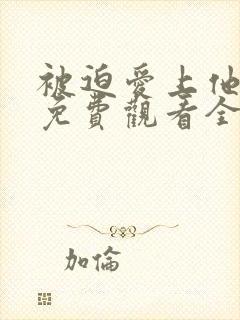 被迫愛上他
免費觀看全
加倫